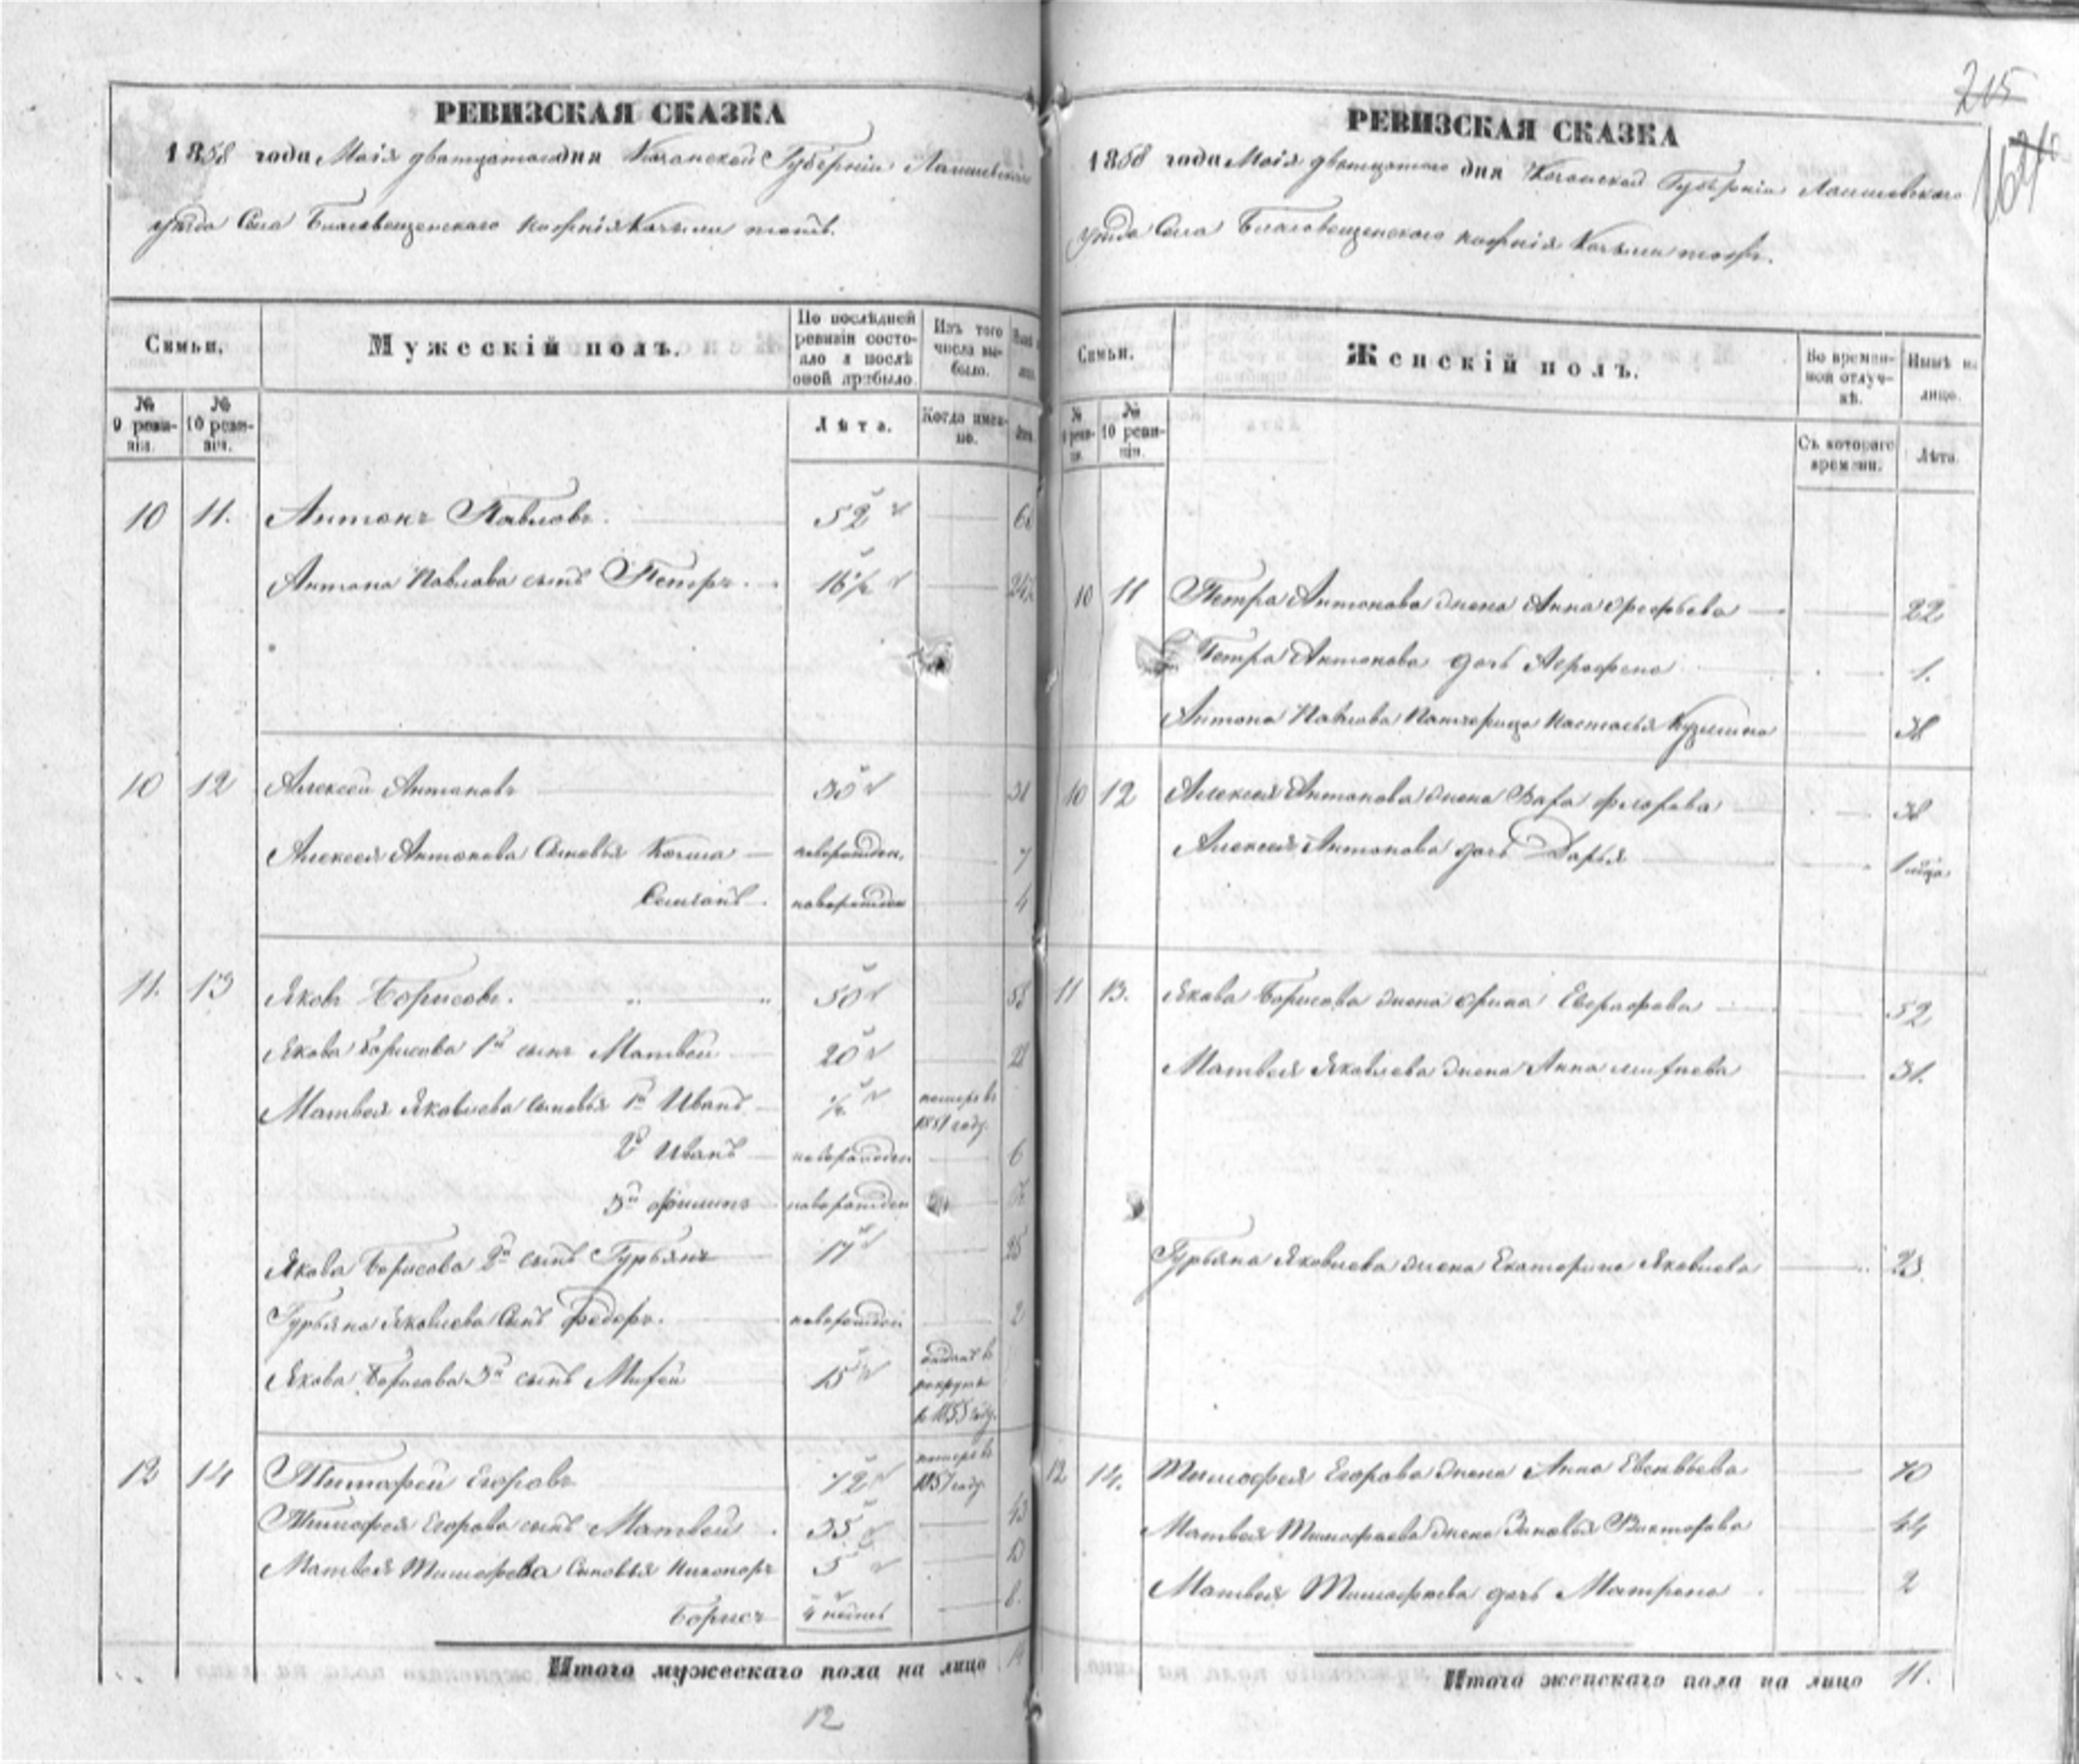 205
РЕВИЗСКАЯ СКАЗКА
1858 года Маія дватцатого дня Казанской Губерніи Лаишевскаго
уѣзда Села Благовещенского
Семьи.
Мужескій полъ.
По послѣдней ревизіи состояло и послѣ оной прибыло
Изъ того числа выбыло.
№ 9 ревизіи.
№ 10 ревизіи.
Лѣта.
Когда именно.
Лѣта.
10 11. Антонъ Павловъ. 52
Антона Павлова сынъ Петръ. 16½
10 12 Алексей Антоновъ 30
Алексея Антонова Сыновья Козма новорожден. 7
новорожден 4
11. 13 Яковъ Борисовъ. 50
Якова Борисова 1й сынъ Матвей 20
Матвея Яковлева сыновья 1й Иванъ ½ помер въ 1851 году.
2й Иванъ новорожден 6
3й Филипъ новорожден
Якова Борисова 2й сынъ Гурьянъ 17 25
Гурьяна Яковлева Сынъ Федоръ. новорожден 2
Якова Борисова 3й сынъ 15 отданъ в рекруты в 1855 году.
12 14 Тимофей Егоровъ 72 помер въ 1857 году.
Тимофея Егорова сынъ Матвей 35 43
Матвея Тимофеева Сыновья Никоноръ 5 13
Борисъ 8.
Итого мужескаго пола на лицо
12
РЕВИЗСКАЯ СКАЗКА
1858 года Маія дватцатого дня Казанской Губерніи Лаишевскаго
уѣзда Села Благовещенского
Семьи.
Женскій полъ.
Во временной отлучкѣ.
Нынѣ на лицо.
№ 9 ревизіи.
№ 10 ревизіи.
Съ котораго времени.
Лѣта.
10 11 Петра Антонова жена Анна 22
Петра Антонова дочь Аграфена 1.
Антона Павлова Настасья Кузмина 38
10 12 Алексея Антонова жена 38
Алексея Антонова дочь Дарья
11 13. Якова Борисова жена Ирина Евграфова 52
Матвея Яковлева жена Анна 31.
Гурьяна Яковлева жена Екатерина Яковлева 23.
12 14. Тимофея Егорова жена Анна 70
Матвея Тимофеева жена Зиновья Викторова 44
Матвея Тимофеева дочь Матрена 2
Итого женскаго пола на лицо 11.